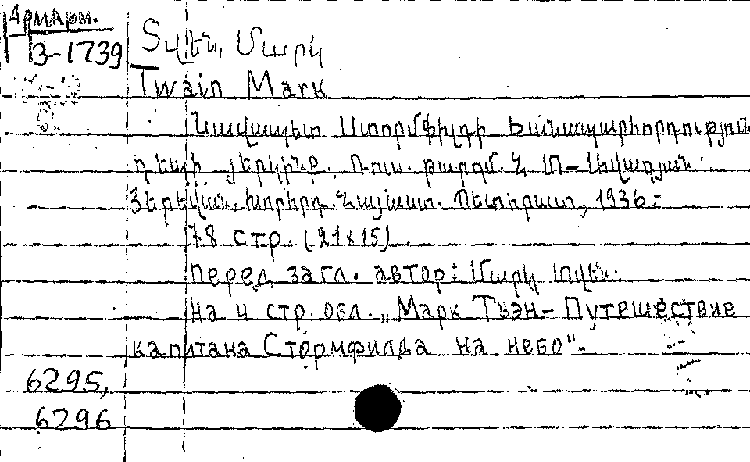 Армарм.
3-1739
Տվեն, Մարկ
Twain Mark
Նավապետ Ստորմֆիլդի ճանապարհորդություն
դեպի յերկինք. Ռուս. թարգմ.
Յերեվան, Խորհրդ. Հայաստ. Պետհրատ, 1936.-
78 стр. (21x15).
Перед загл. автор: Մարկ Տվեն.
На 4 стр. обл. „Марк Твэн- Путешествие
капитана Стормфилда на небо".-
6295,
6296